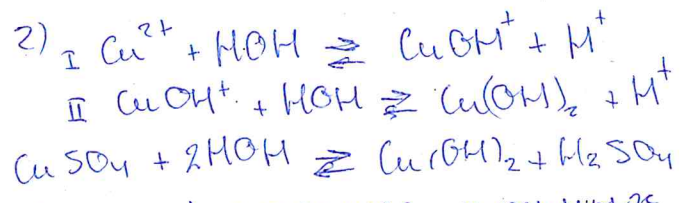 2) I Cu²⁺ + HOH ⇄ CuOH⁺ + H⁺
II CuOH⁺ + HOH ⇄ Cu(OH)₂ + H⁺
CuSO₄ + 2HOH ⇄ Cu(OH)₂ + H₂SO₄